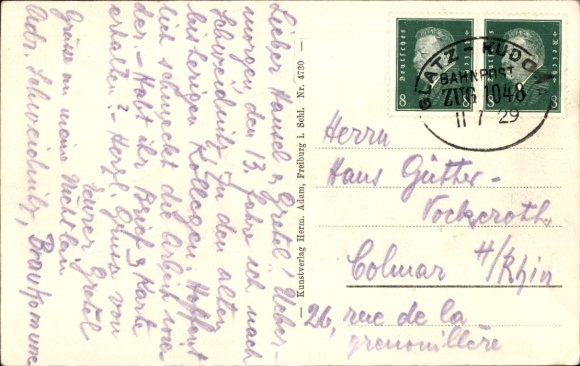 Lieber Hansel & Gretel! Ueber-
morgen, den 13. fahre ich nach
Schweidnitz zu den alten
bärtigen Kollegen. Hoffent
lich schmeckt die Arbeit wie-
der. - Habt ihr Brief & Karte
erhalten? - Herzl. Grüsse von
Eurer Gretel
Grüsse an meine
Adr. Schweidnitz,
— Kunstverlag Herm. Adam, Freiburg i. Schl. Nr. 4730 —
Deutsches Reich
8 8
Deutsches Reich
8 8
GLATZ - KUDOWA
BAHNPOST
ZUG 1048
11 7 29
Herrn
Hans Gütter-
Vockeroth
Colmar / Rhin
26, rue de la
grenouillère